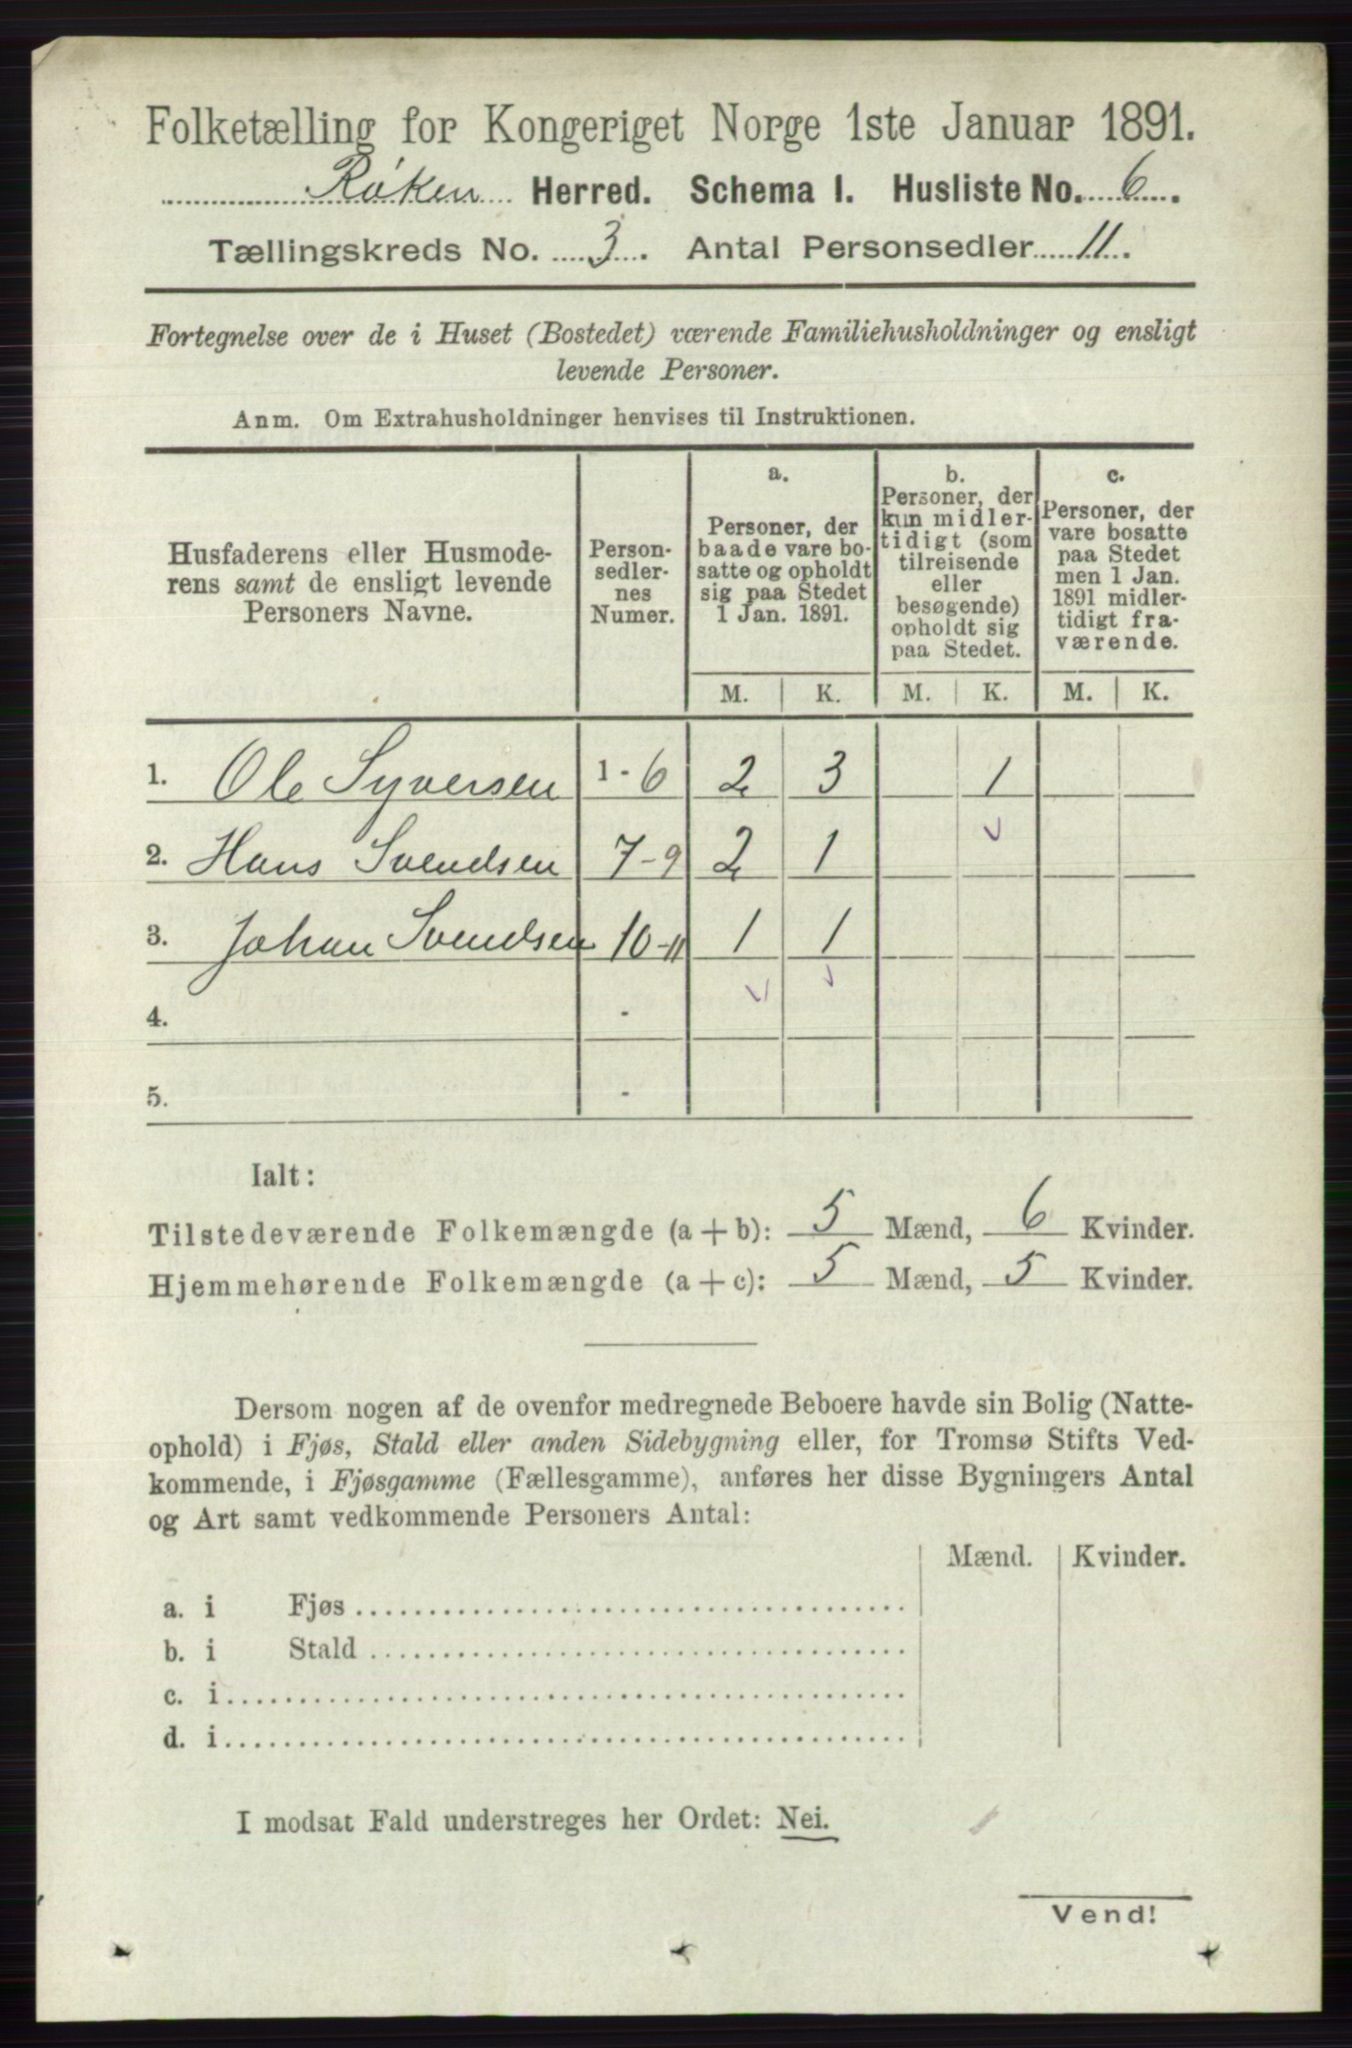 Folketælling for Kongeriget Norge 1ste Januar 1891.
Røken Herred. Schema I. Husliste No. 6.
Tællingskreds No. 3. Antal Personsedler 11.
Fortegnelse over de i Huset (Bostedet) værende Familiehusholdninger og ensligt
levende Personer.
Anm. Om Extrahusholdninger henvises til Instruktionen.
Husfaderens eller Husmode-
rens samt de ensligt levende
Personers Navne.
Person-
sedler-
nes
Numer.
a.
Personer, der
baade vare bo-
satte og opholdt
sig paa Stedet
1 Jan. 1891.
b.
Personer, der
kun midler-
tidigt (som
tilreisende
eller
besøgende)
opholdt sig
paa Stedet.
c.
Personer, der
vare bosatte
paa Stedet
men 1 Jan.
1891 midler-
tidigt fra-
værende.
M. K. M. K. M. K.
1. Ole Syversen 1-6 2 3 1
2. Hans Svendsen 7-9 2 1
3. Johan Svendsen 10-11 1 1
4. -
5. -
Ialt:
Tilstedeværende Folkemængde (a + b): 5 Mænd, 6 Kvinder.
Hjemmehørende Folkemængde (a + c): 5 Mænd, 5 Kvinder.
Dersom nogen af de ovenfor medregnede Beboere havde sin Bolig (Natte-
ophold) i Fjøs, Stald eller anden Sidebygning eller, for Tromsø Stifts Ved-
kommende, i Fjøsgamme (Fællesgamme), anføres her disse Bygningers Antal
og Art samt vedkommende Personers Antal:
Mænd. Kvinder.
a. i Fjøs
b. i Stald
c. i
d. i
I modsat Fald understreges her Ordet: Nei.
Vend!